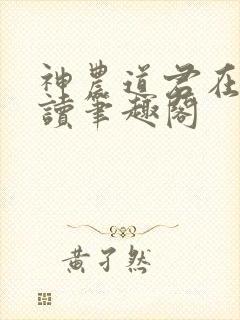 神農道君在
讀筆趣閣
黃孑然